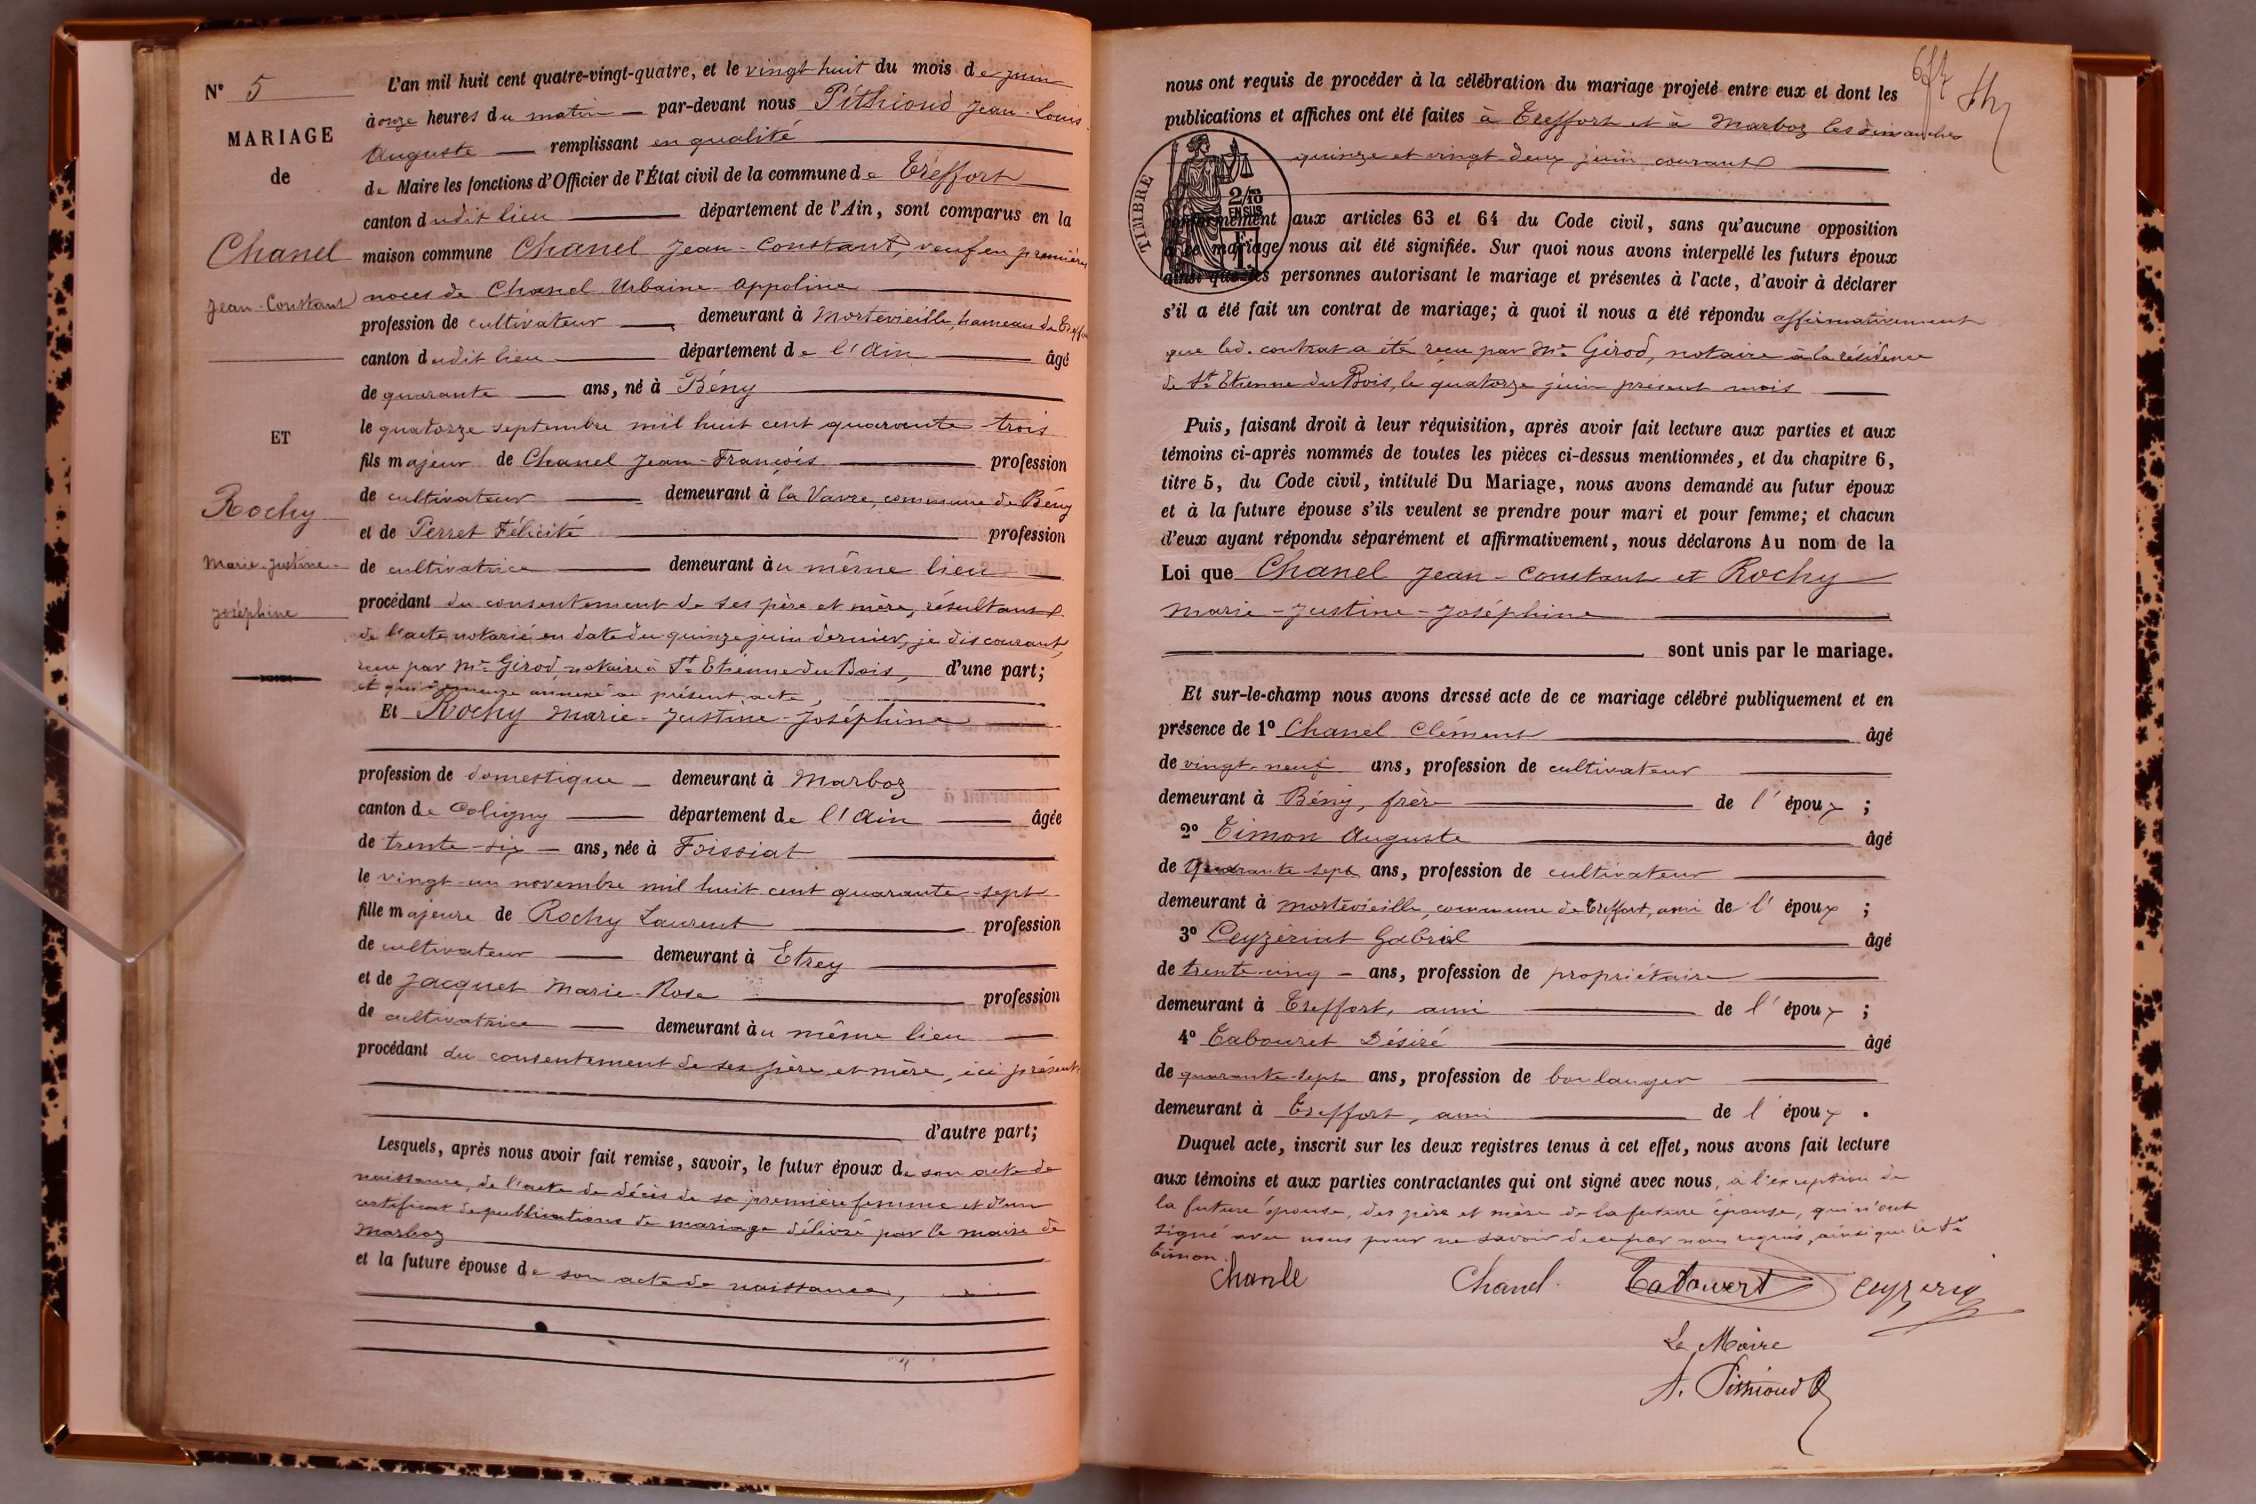 N° 5
MARIAGE
de
Chanel
Jean-Constant
ET
Rochy
Marie-Justine-
Joséphine
L'an mil huit cent quatre-vingt-quatre, et le vingt huit du mois de juin
à onze heures du matin par-devant nous Pithioud Jean-Louis-
Auguste remplissant en qualité
de Maire les fonctions d'Officier de l'État civil de la commune de Treffort
canton dudit lieu département de l'Ain, sont comparus en la
maison commune Chanel Jean-Constant, veuf en premières
noces de Chanel Urbaine Appoline
profession de cultivateur demeurant à Mortevieille, hameau de Treffort
canton dudit lieu département de l'Ain âgé
de quarante ans, né à Bény
le quatorze septembre mil huit cent quarante-trois
fils majeur de Chanel Jean-François profession
de cultivateur demeurant à la Vavre, commune de Bény
et de Perret Félicité profession
de cultivatrice demeurant au même lieu
procédant du consentement de ses père et mère, résultant
de l'acte notarié en date du quinze juin dernier, je dis courant,
reçu par Me Girod, notaire à St Etienne du Bois, d'une part;
et qui demeure annexé au présent acte,
Et Rochy Marie-Justine-Joséphine
profession de domestique demeurant à Marboz
canton de Coligny département de l'Ain âgée
de trente-six ans, née à Foissiat
le vingt-un novembre mil huit cent quarante-sept
fille majeure de Rochy Laurent profession
de cultivateur demeurant à Etrey
et de Jacquet Marie-Rose profession
de cultivatrice demeurant au même lieu
procédant du consentement de ses père et mère, ici présents
d'autre part;
Lesquels, après nous avoir fait remise, savoir, le futur époux de son acte de
naissance, de l'acte de décès de sa première femme et d'un
certificat de publications de mariage délivré par le maire de
Marboz
et la future épouse de son acte de naissance,
nous ont requis de procéder à la célébration du mariage projeté entre eux et dont les
publications et affiches ont été faites à Treffort et à Marboz les dimanches
quinze et vingt deux juin courant
TIMBRE
2/10
EN SUS
1 F.
conformément aux articles 63 et 64 du Code civil, sans qu'aucune opposition
à ce mariage nous ait été signifiée. Sur quoi nous avons interpellé les futurs époux
ainsi que les personnes autorisant le mariage et présentes à l'acte, d'avoir à déclarer
s'il a été fait un contrat de mariage; à quoi il nous a été répondu affirmativement
que led. contrat a été reçu par Me Girod, notaire à la résidence
de St Etienne du Bois, le quatorze juin présent mois
Puis, faisant droit à leur réquisition, après avoir fait lecture aux parties et aux
témoins ci-après nommés de toutes les pièces ci-dessus mentionnées, et du chapitre 6,
titre 5, du Code civil, intitulé Du Mariage, nous avons demandé au futur époux
et à la future épouse s'ils veulent se prendre pour mari et pour femme; et chacun
d'eux ayant répondu séparément et affirmativement, nous déclarons Au nom de la
Loi que Chanel Jean-Constant et Rochy
Marie-Justine-Joséphine
sont unis par le mariage.
Et sur-le-champ nous avons dressé acte de ce mariage célébré publiquement et en
présence de 1° Chanel Clément âgé
de vingt-neuf ans, profession de cultivateur
demeurant à Bény, frère de l'époux;
2° Timon Auguste âgé
de quarante-sept ans, profession de cultivateur
demeurant à Mortevieille, commune de Treffort, ami de l'époux;
3° Ceyzériat Gabriel âgé
de trente-cinq ans, profession de propriétaire
demeurant à Treffort, ami de l'époux;
4° Tabouret Désiré âgé
de quarante-sept ans, profession de boulanger
demeurant à Treffort, ami de l'époux.
Duquel acte, inscrit sur les deux registres tenus à cet effet, nous avons fait lecture
aux témoins et aux parties contractantes qui ont signé avec nous, à l'exception de
la future épouse, des père et mère de la future épouse, qui n'ont
signé avec nous pour ne savoir de ce par nous requis, ainsi que le Sr
Timon.
Chanle Chanel. Tabouret
Le Maire
A. Pithioud